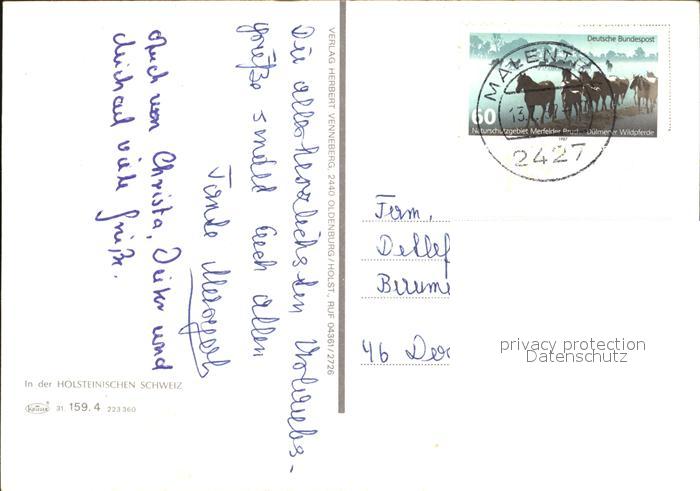 Die allerherzlichsten Urlaubs-
grüße sendet Euch allen
Tante Margret
Auch von Christa, Dieter und
Michael viele Grüße.
In der HOLSTEINISCHEN SCHWEIZ
Krüger 31. 159. 4 223 360
VERLAG HERBERT VENNEBERG, 2440 OLDENBURG/HOLST., RUF 04361/2726
Deutsche Bundespost
60
Naturschutzgebiet Merfelder Bruch Dülmener Wildpferde
1987
MALENTE
13.
2427
Fam.
Detlef
46 Dor
privacy protection
Datenschutz